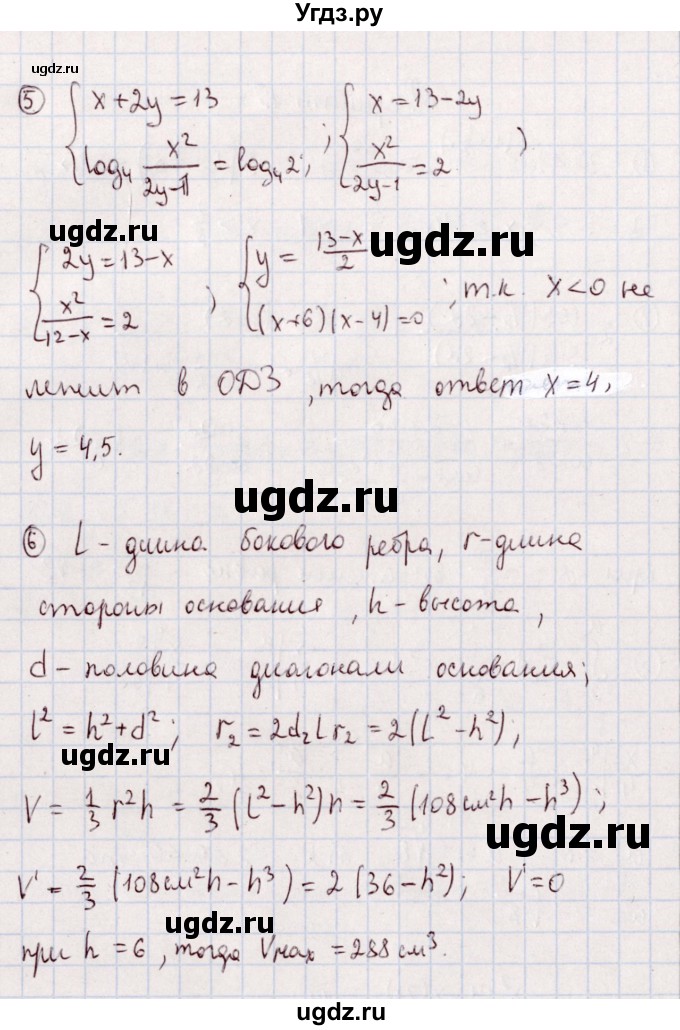 Угдз.ру
ugdz.ru
⑤ { x + 2y = 13 ; { x = 13 - 2y )
log₄ x²/(2y-1) = log₄2; x²/(2y-1) = 2
ugdz.ru
ugdz.ru
{ 2y = 13-x ) { y = (13-x)/2 ; т.к. x<0 не
x²/(12-x) = 2 (x+6)(x-4)=0
лежит в ОДЗ, тогда ответ x=4,
y = 4,5.
ugdz.ru
⑥ L - длина бокового ребра, r-длина
стороны основания, h - высота,
d - половина диагонали основания;
l² = h²+d²; r₂ = 2d₂ L r₂ = 2(L²-h²);
ugdz.ru
V = 1/3 r²h = 2/3 (l²-h²)h = 2/3 (108см²h - h³);
ugdz.ru
V' = 2/3 (108см²h - h³) = 2 (36-h²); V'=0
при h = 6, тогда Vmax = 288 см³.
ugdz.ru